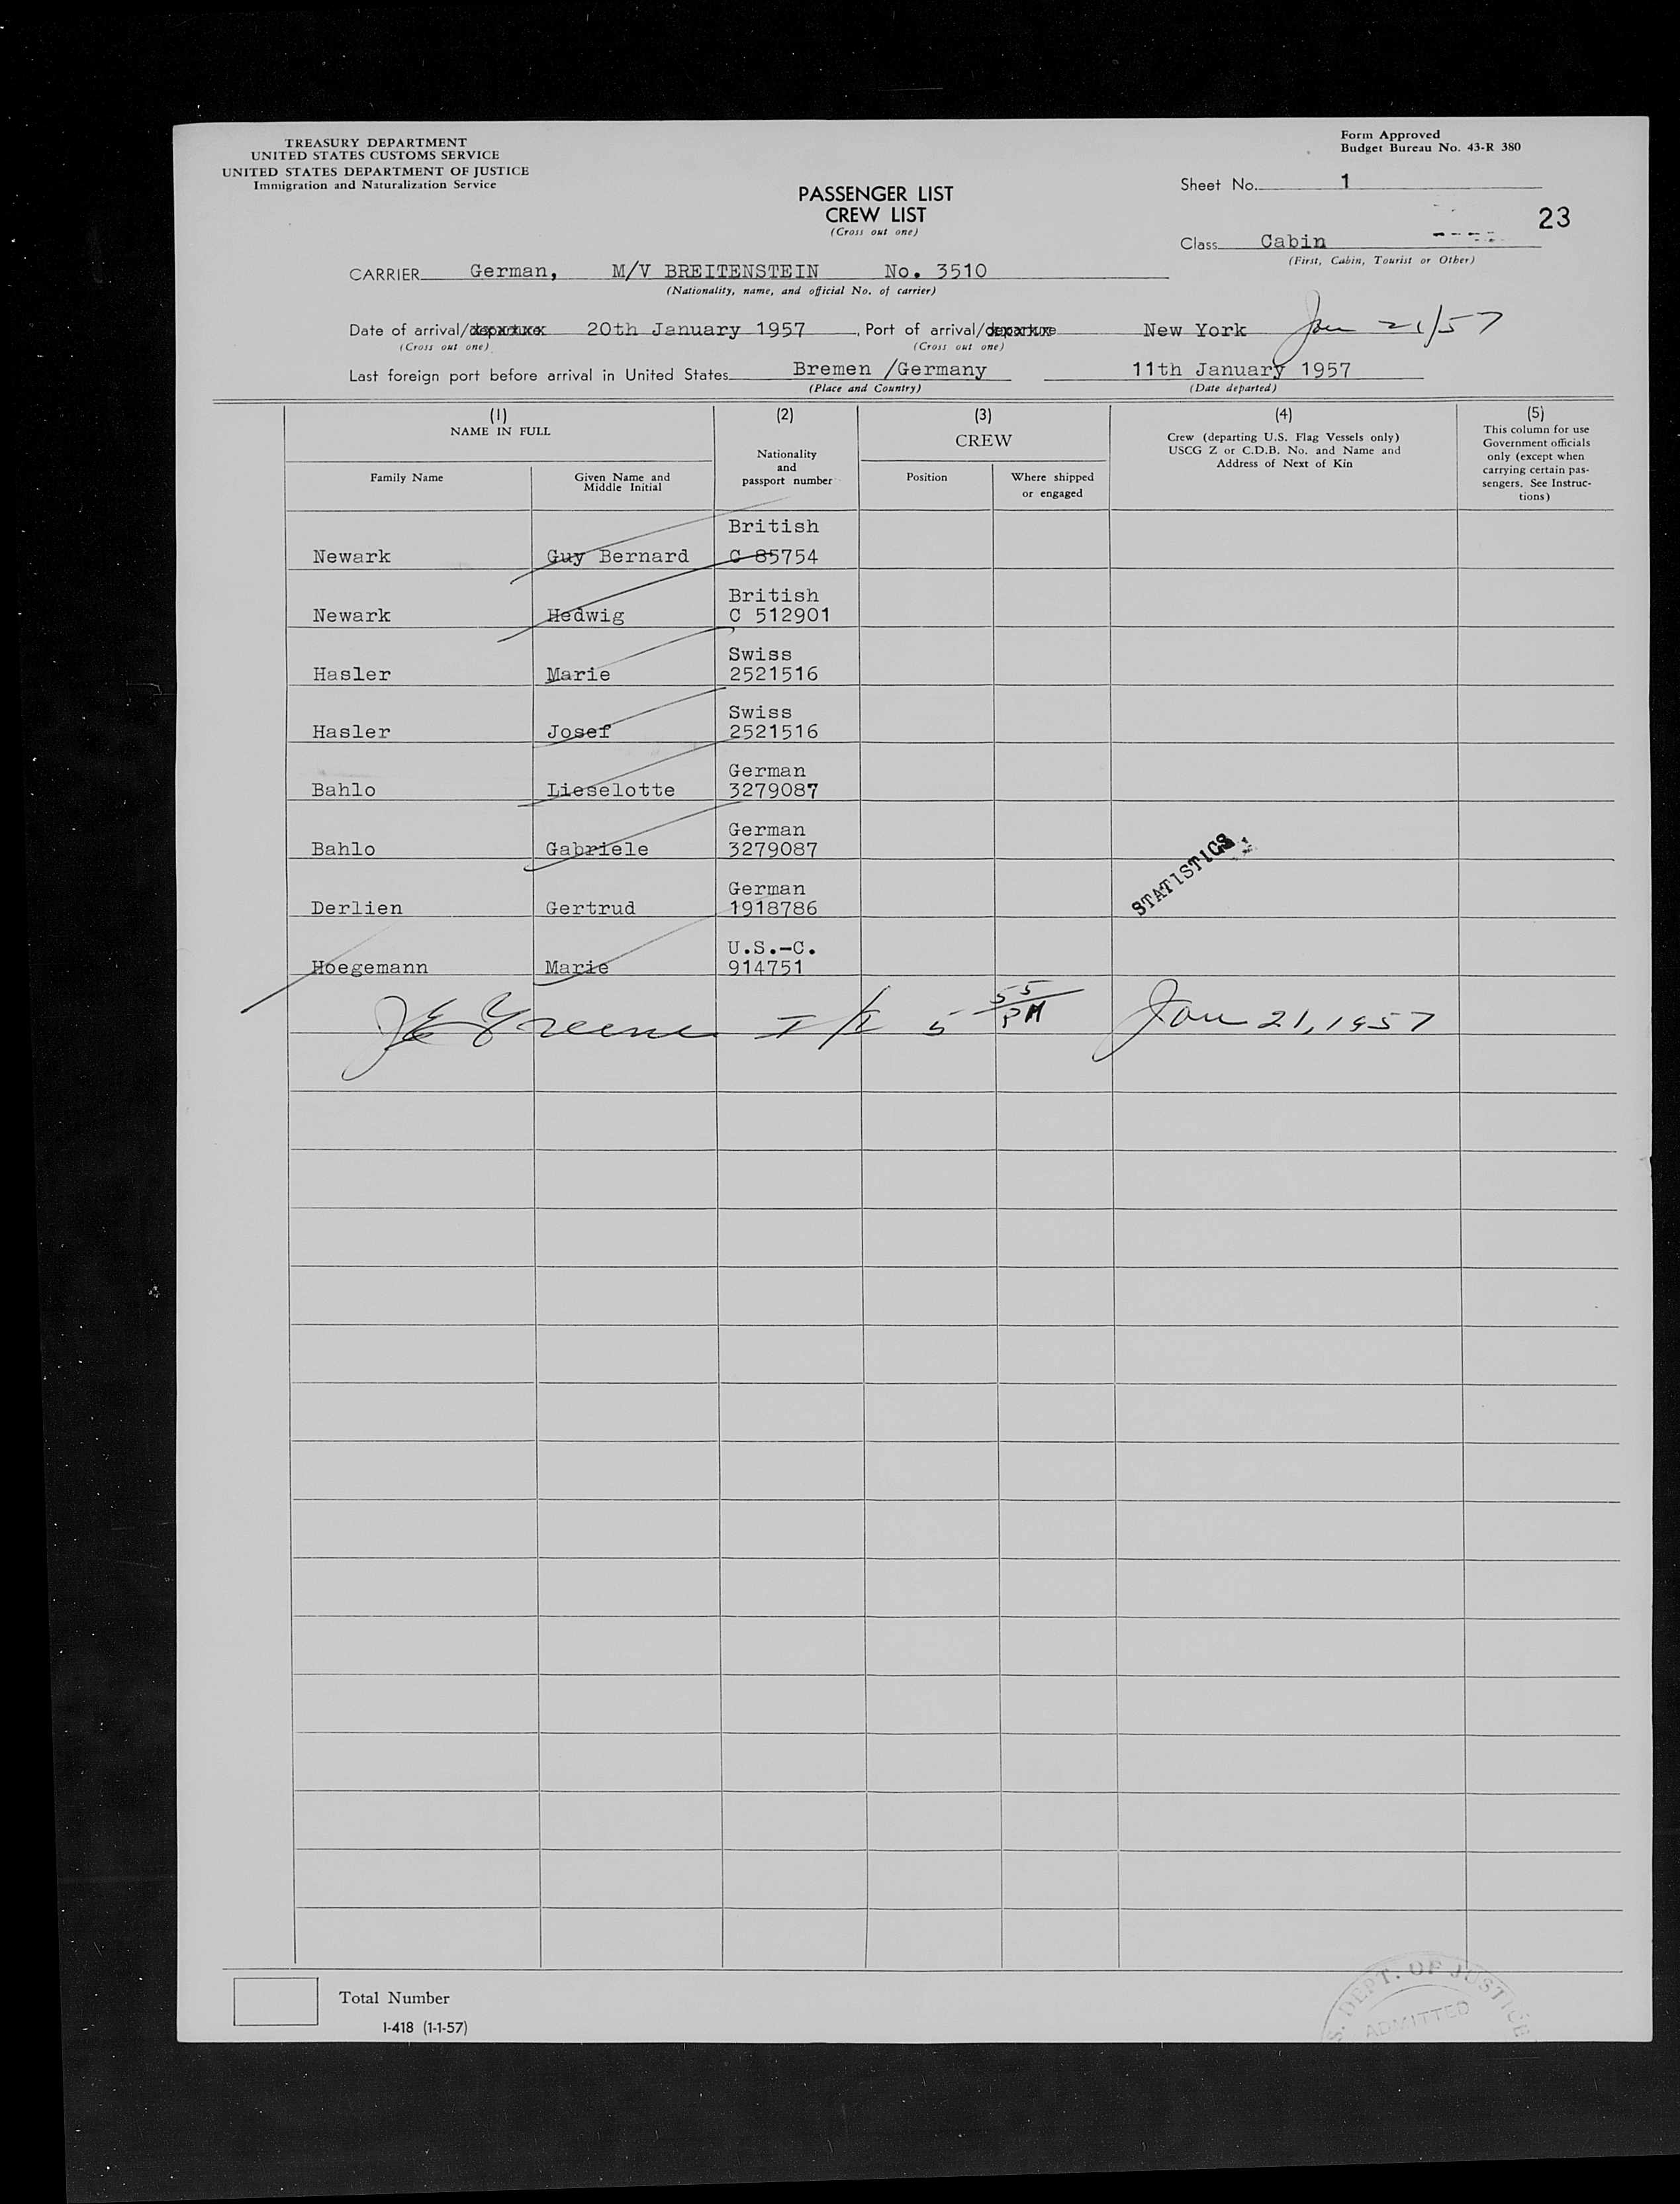 TREASURY DEPARTMENT
UNITED STATES CUSTOMS SERVICE
UNITED STATES DEPARTMENT OF JUSTICE
Immigration and Naturalization Service
Form Approved
Budget Bureau No. 43-R 380
PASSENGER LIST
CREW LIST
(Cross out one)
Sheet No. 1
23
Class Cabin
(First, Cabin, Tourist or Other)
CARRIER German, M/V BREITENSTEIN No. 3510
(Nationality, name, and official No. of carrier)
Date of arrival/departure 20th January 1957, Port of arrival/departure New York Jan 21/57
(Cross out one) (Cross out one)
Last foreign port before arrival in United States Bremen /Germany 11th January 1957
(Place and Country) (Date departed)
(1) (2) (3) (4) (5)
NAME IN FULL
Family Name
Given Name and
Middle Initial
Nationality
and
passport number
CREW
Position
Where shipped
or engaged
Crew (departing U.S. Flag Vessels only)
USCG Z or C.D.B. No. and Name and
Address of Next of Kin
This column for use
Government officials
only (except when
carrying certain pas-
sengers. See Instruc-
tions)
British
Newark Guy Bernard C 85754
British
Newark Hedwig C 512901
Swiss
Hasler Marie 2521516
Swiss
Hasler Josef 2521516
German
Bahlo Lieselotte 3279087
German
Bahlo Gabriele 3279087
STATISTICS
German
Derlien Gertrud 1918786
U.S.-C.
Hoegemann Marie 914751
Greene I/I 5 55 PM Jan 21, 1957
Total Number
I-418 (1-1-57)
DEPT. OF JUSTICE
ADMITTED